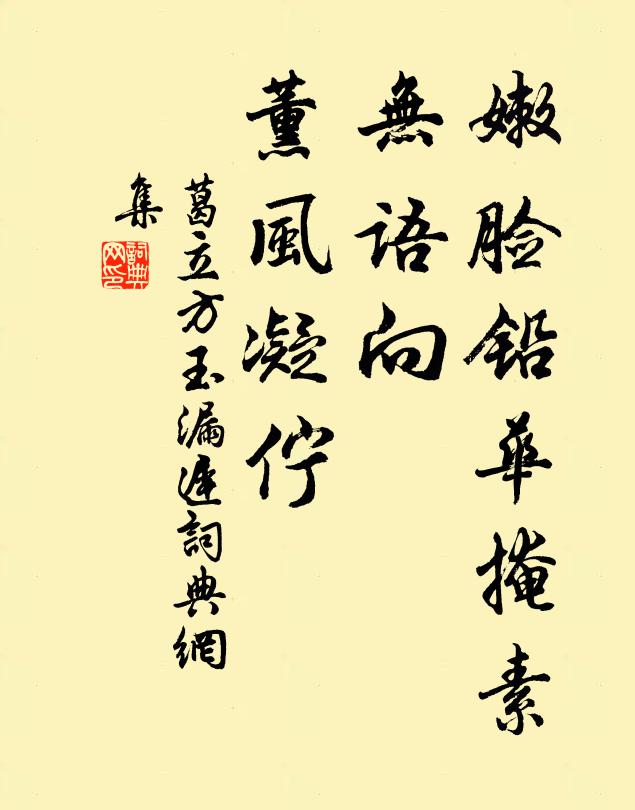 嫩脸鉛華掩素
無語向
薰風凝佇
葛立方玉漏遲詞典網
集
詞典網印